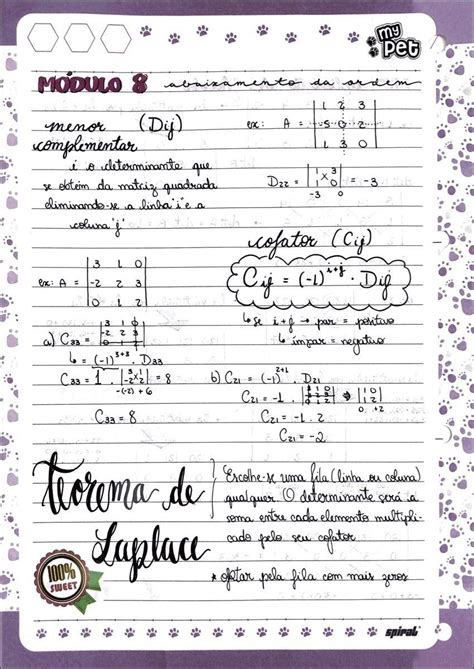 my Pet
MÓDULO 8 abaixamento da ordem
menor (Dij)
complementar
é o determinante que
se obtem da matriz quadrada
eliminando-se a linha "i" e a
coluna "j"
ex: A = | 1 2 3 |
| -5 0 2 |
| 1 3 0 |
D₂₂ = | 1 3 | = -3
| 1 0 |
-3 0
cofator (Cij)
Cij = (-1)^i+j · Dij
↳ se i+j → par = positivo
↳ ímpar = negativo
ex: A = | 3 1 0 |
| -2 2 3 |
| 0 1 2 |
a) C₃₃ = | 3 1 0 |
| -2 2 3 |
| 0 1 2 |
↳ = (-1)³⁺³ · D₃₃
C₃₃ = 1 · | 3 1 | = 8
| -2 2 |
-(-2) + 6
C₃₃ = 8
b) C₂₁ = (-1)²⁺¹ · D₂₁
C₂₁ = -1 · | 3 1 0 | ⇒ | 1 0 |
| 1 2 |
0 +2
C₂₁ = -1 · 2
C₂₁ = -2
Teorema de
Laplace
Escolhe-se uma fila (linha ou coluna)
qualquer. O determinante será a
soma entre cada elemento multipli-
cado pelo seu cofator
* optar pela fila com mais zeros
100%
SWEET
spiral